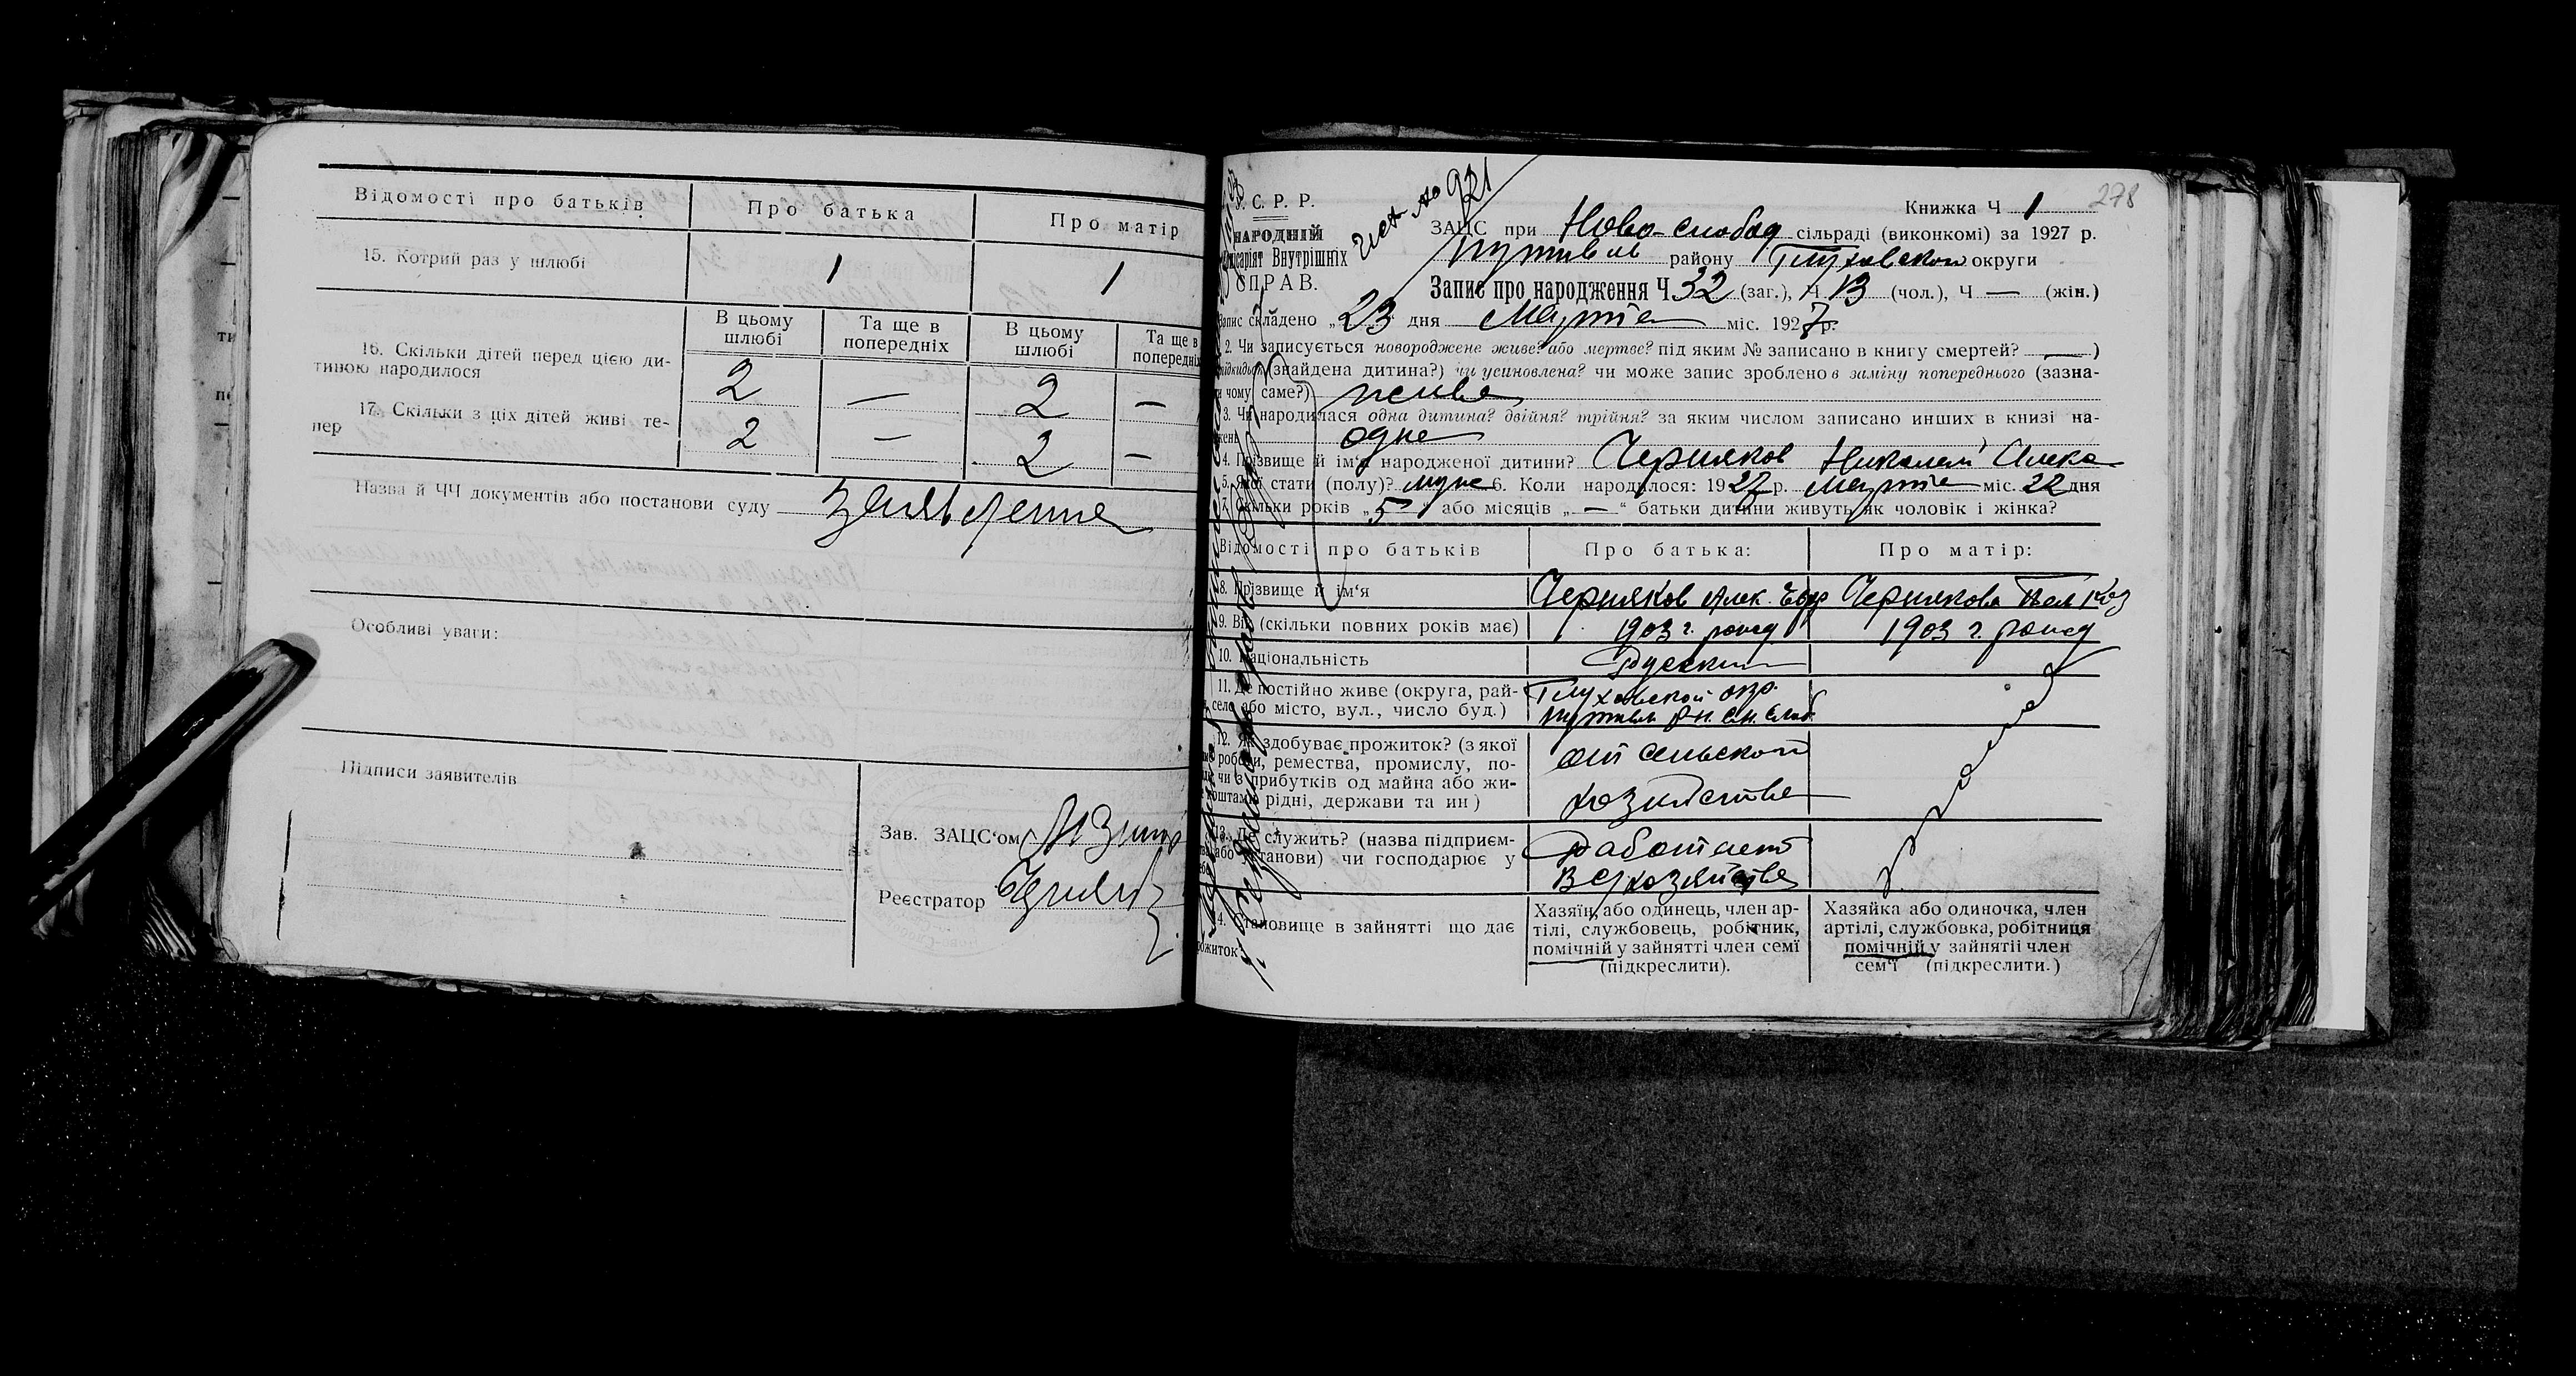 Відомості про батьків
Про батька
Про матір
15. Котрий раз у шлюбі
1
1
В цьому шлюбі
Та ще в попередніх
В цьому шлюбі
Та ще в попередніх
16. Скільки дітей перед цією ди-
тиною народилося
2 — 2 —
17. Скільки з ціх дітей живі те-
пер
2 — 2 —
Назва й ЧЧ документів або постанови суду
Особливі уваги:
Підписи заявителів
Зав. ЗАЦС‘ом
Реєстратор
278
Книжка Ч 1
С. Р. Р.
НАРОДНІЙ
Внутрішніх
СПРАВ.
№ 921
ЗАЦС при Ново-слобод сільраді (виконкомі) за 1927 р.
Путивль району Глуховской округи
Запис про народження Ч 32 (заг.), Ч 13 (чол.), Ч — (жін.)
Запис складено „23 дня Марта міс. 1927 р.
2. Чи записується новороджене живе? або мертве? під яким № записано в книгу смертей? —)
(знайдена дитина?) чи усиновлена? чи може запис зроблено в заміну попереднього (зазна-
чому саме?) живе
3. Чи народилася одна дитина? двійня? трійня? за яким числом записано инших в книзі на-
одне
4. Прізвище й ім‘я народженої дитини? Черняков Николай Алекс
5. Якої стати (полу)? муж 6. Коли народилося: 1927 р. Марта міс. 22 дня
7. Скільки років „5“ або місяців „—“ батьки дитини живуть як чоловік і жінка?
Відомості про батьків
Про батька:
Про матір:
8. Прізвище й ім‘я
Черняков Алек.
Чернякова
9. Вік (скільки повних років має)
1903 г. рожд
1903 г. рожд
10. Національність
Русский
11. Де постійно живе (округа, рай-
село або місто, вул., число буд.)
Глуховской окр.
Путивл
12. Як здобуває прожиток? (з якої
роботи, ремества, промислу, по-
чи з прибутків од майна або жи-
коштам рідні, держави та ин)
от сельского
хозяйства
13. Де служить? (назва підприєм-
або установи) чи господарює у
Работает
в с/хозяйстве
14. Становище в зайнятті що дає
прожиток
Хазяїн, або одинець, член ар-
тілі, службовець, робітник,
помічній у зайнятті член семї
(підкреслити).
Хазяйка або одиночка, член
артілі, службовка, робітниця
помічній у зайнятіі член
сем‘ї (підкреслити.)